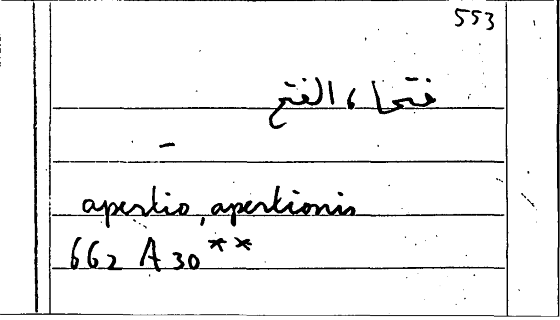 553
فتحا ، الفتح
–
apertio, apertionis
662 A 30 **